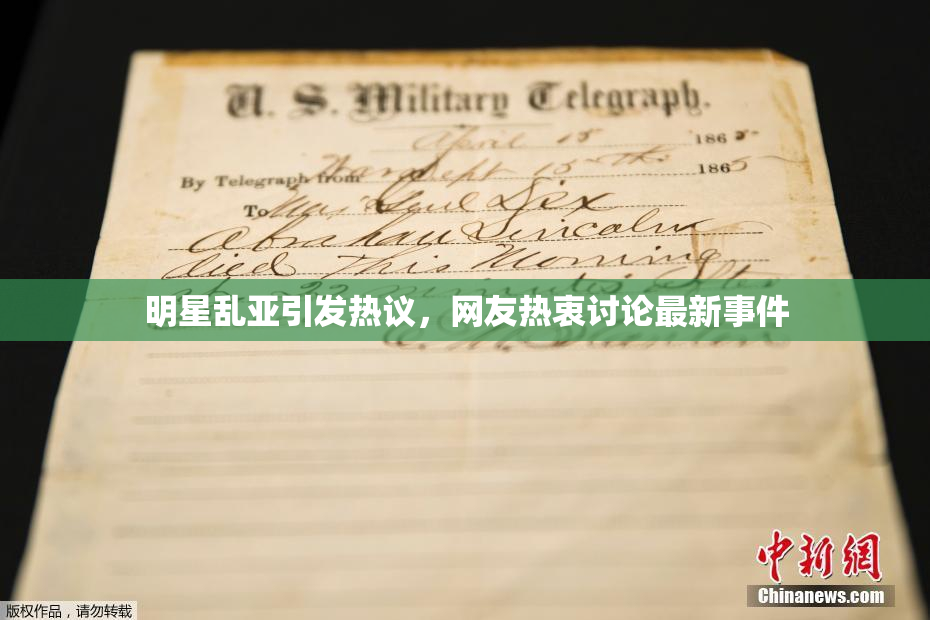 U. S. Military Telegraph.
April 15 1865
By Telegraph from War Dept 15th 1865
To Maj Genl Dix
Abraham Lincoln
died This Morning
at 22 minutes after
明星乱亚引发热议，网友热衷讨论最新事件
E. M. Stanton
中新网
Chinanews.com
版权作品，请勿转载